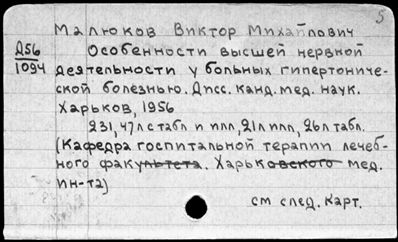 5
Малюков Виктор Михайлович
Д56
1094
Особенности высшей нервной
деятельности у больных гипертониче-
ской болезнью. Дисс. канд. мед. наук.
Харьков, 1956
231, 47л с табл и илл, 21л илл, 26л табл.
(Кафедра госпитальной терапии лечеб-
ного факультета. Харьковского мед.
ин-та)
см след. карт.